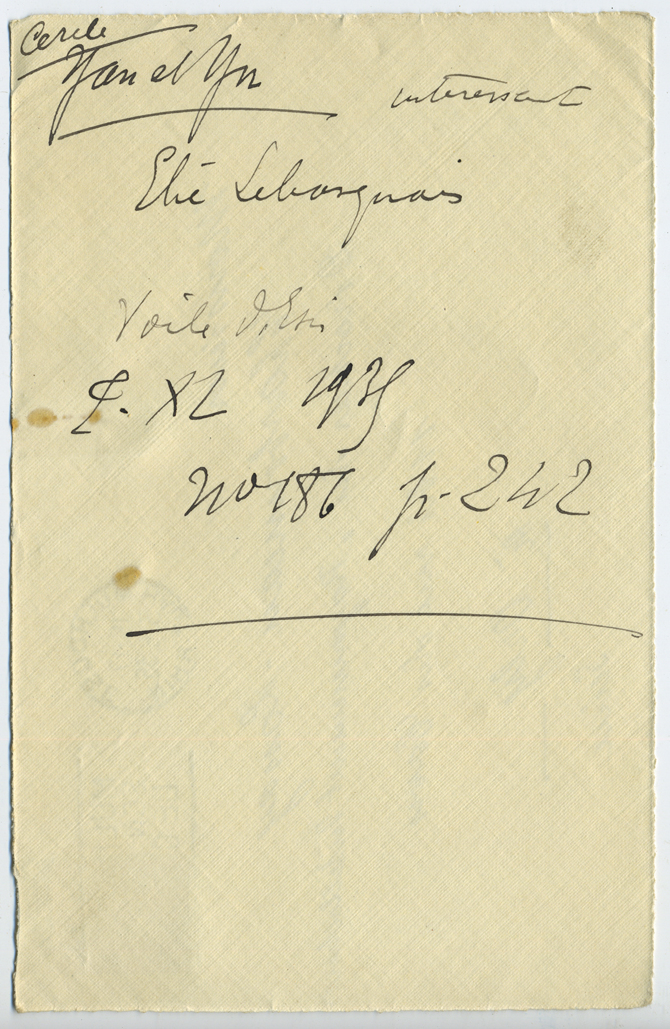 Cercle
Yan et Yn interessant
Elie Lebasquais
Voile d'Isis
T. XL 1935
No 186 p. 242